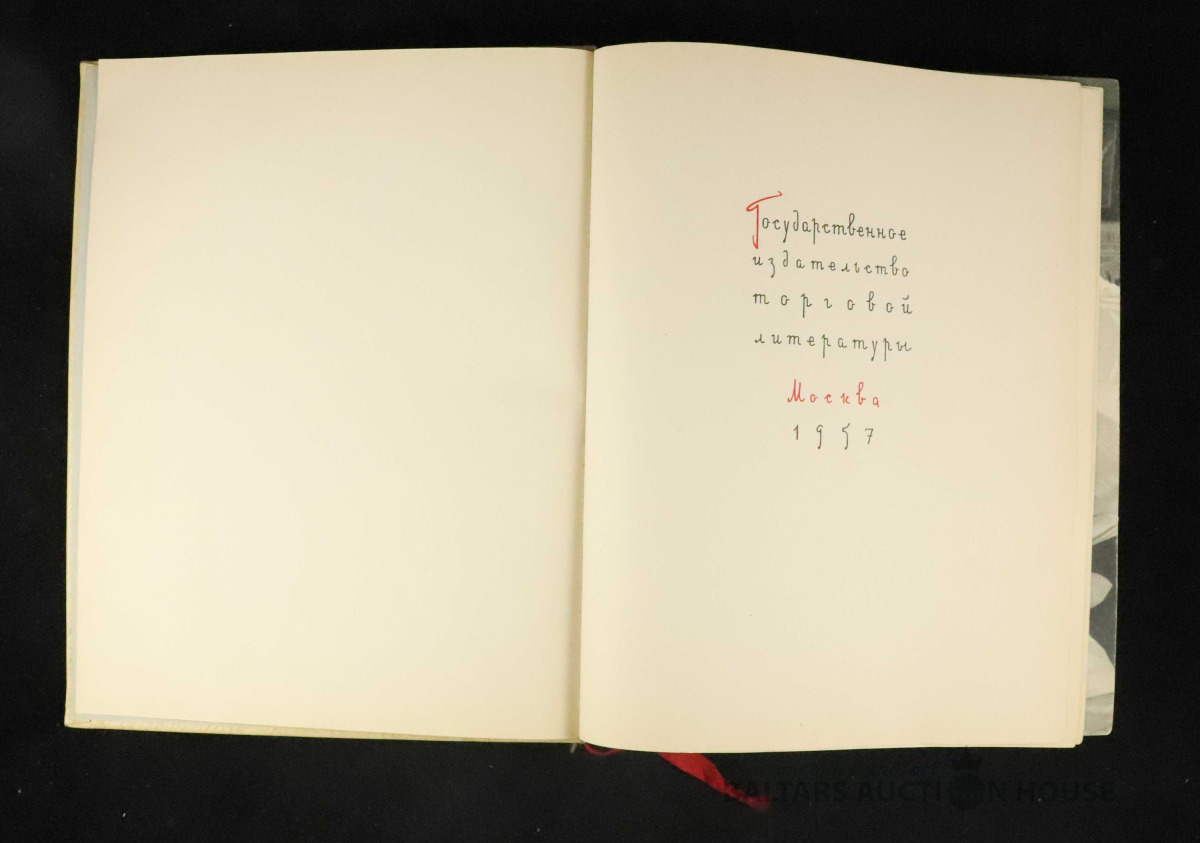 Государственное
издательство
торговой
литературы
Москва
1957
BALTARS AUCTION HOUSE